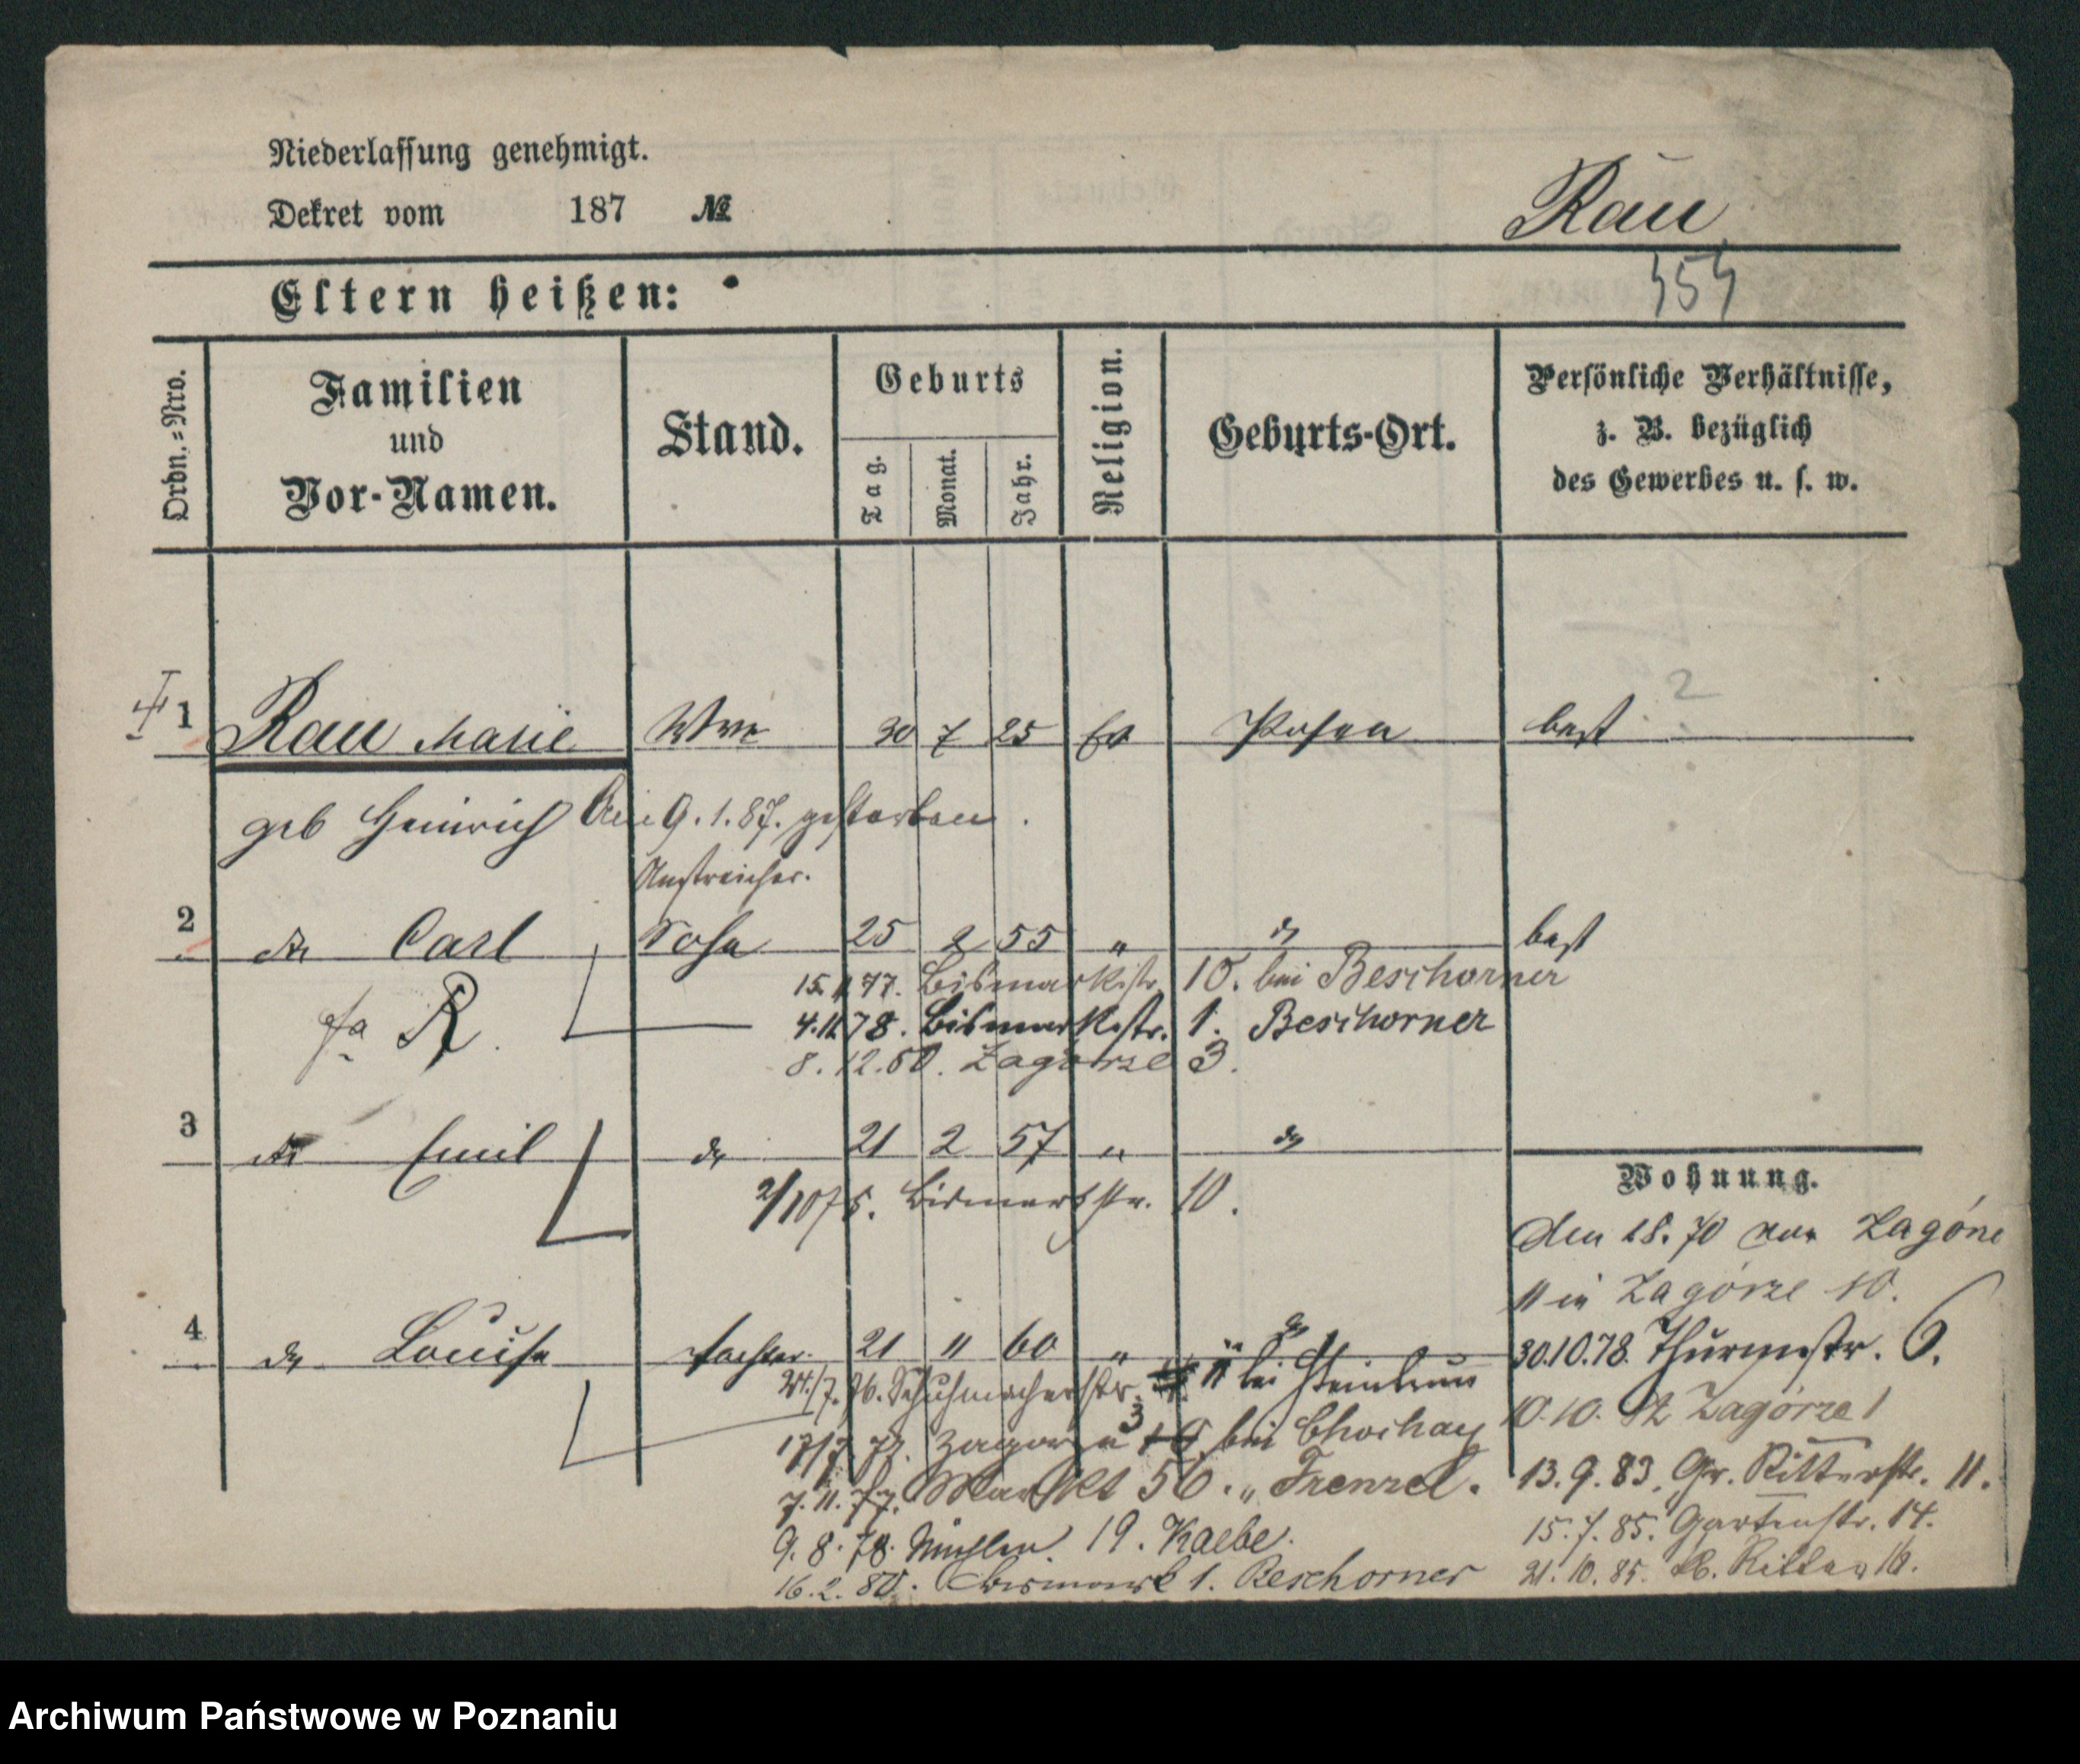 Niederlassung genehmigt.
Dekret vom 187 №
Rau
Eltern heißen:
Ordn.-Nro.
Familien und Vor-Namen.
Stand.
Geburts
Tag.
Monat.
Jahr.
Religion.
Geburts-Ort.
Persönliche Verhältnisse,
z. B. bezüglich
des Gewerbes u. s. w.
2
1 Rau Marie Wwe 30 7 25 ev Posen best
geb Heinrich Am 9.1.87. gestorben.
Anstreicher.
2 do Carl Sohn 25 2 55 " do best
15. 77. Bismarkstr. 10. bei Beschorner
R. 4.11.78. Bismarkstr. 1. Beschorner
8.12.80. Zagorze 3.
3 do Emil do 21 2 57 " do
Wohnung.
2/10 75. Bismarkstr. 10.
Den 18.70 von Zagórze
11 in Zagórze 10.
4 do Louise Tochter 21 " 60 " do
30.10.78. Thurmstr. 6.
24./7. 76. Schuhmacherstr. 11 bei
10.10. Zagórze 1
17/7 77. Zagorze 3 bei
7.11.77. Markt 56. " Frenzel.
13.9.83. Gr. Ritterstr. 11.
9.8.78. Mühlen 19. Kaebe.
15.7.85. Gartenstr. 14.
16.2.80. Bismark 1. Beschorner
21.10.85. Ritter 16.
Archiwum Państwowe w Poznaniu